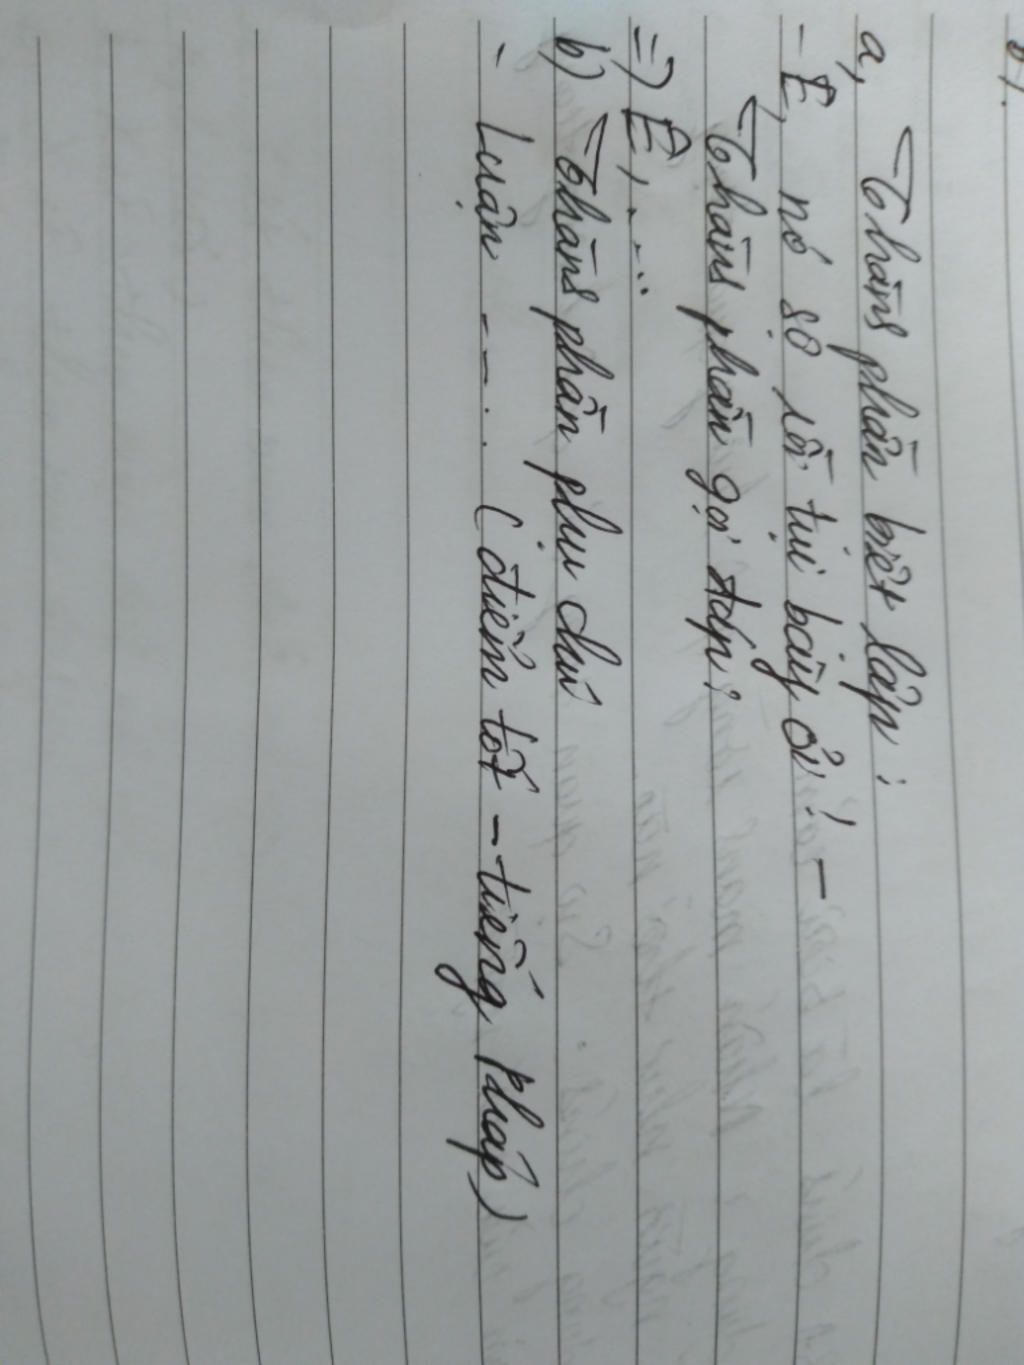 a, Thành phần biệt lập:
- Ê, nó sợ rồi tụi bây ơi! -
Thành phần gọi đáp:
=> Ê, ...
b) Thành phần phụ chú
- Luận --. (điểm tốt - tiếng Pháp)